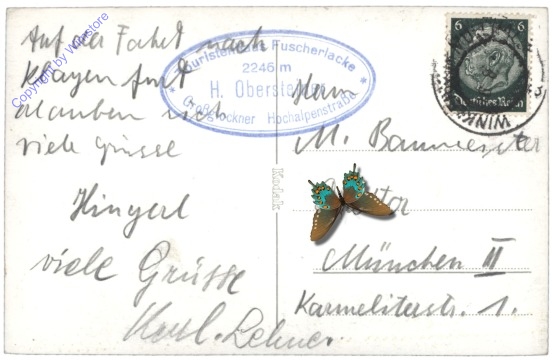 Auf der Fahrt nach
viele Grüsse
Hingerl
viele Grüsse
Touristenhaus Fuscherlacke
2246 m
H. Obersteiner
Großglockner Hochalpenstraße
Kodak
6 6
Deutsches Reich
WINK
Herrn
M. Baumeister
München II
Karmeliterstr. 1.
Copyright by Wipstore